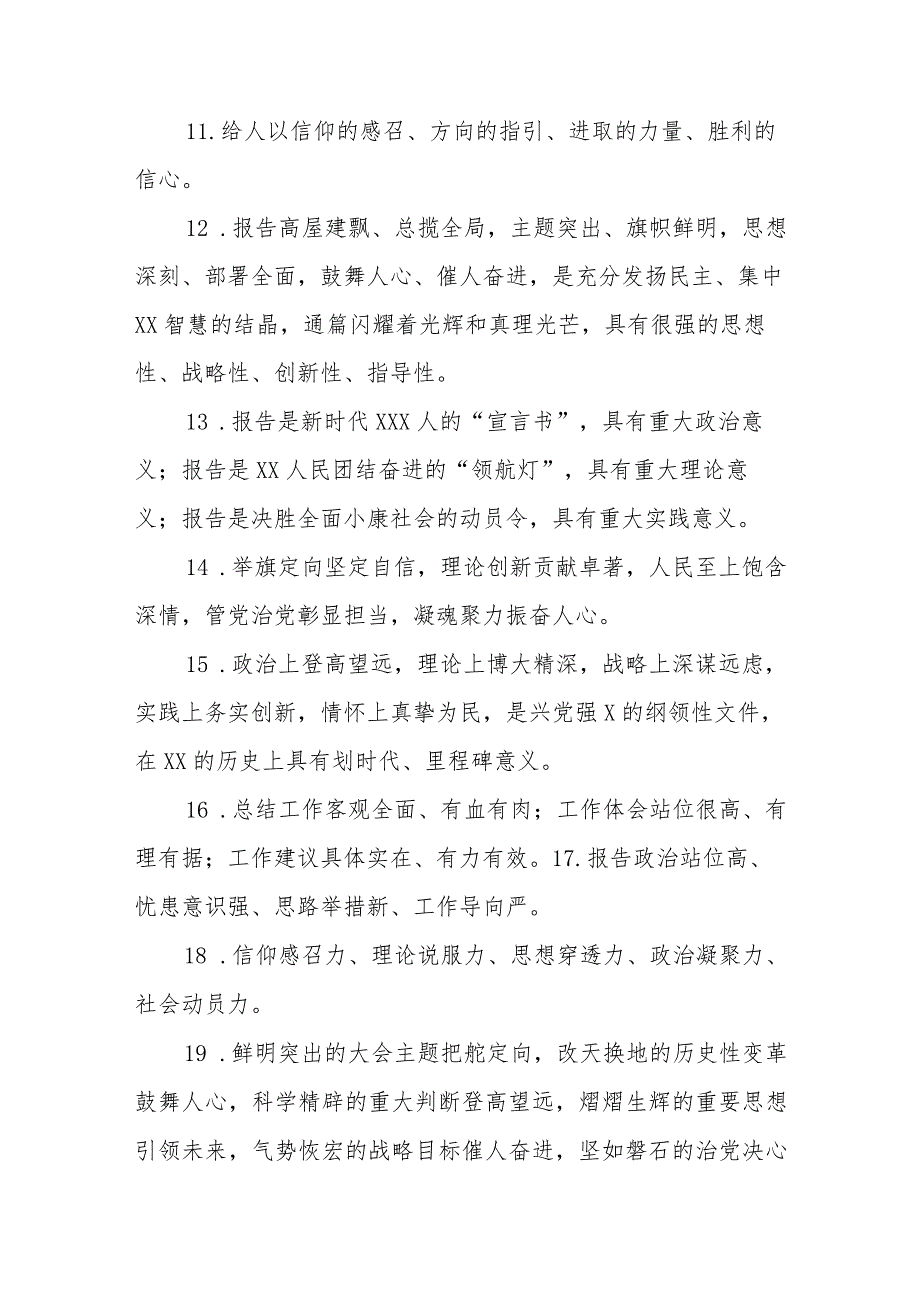 11.给人以信仰的感召、方向的指引、进取的力量、胜利的
信心。
12 .报告高屋建飘、总揽全局，主题突出、旗帜鲜明，思想
深刻、部署全面，鼓舞人心、催人奋进，是充分发扬民主、集中
XX 智慧的结晶，通篇闪耀着光辉和真理光芒，具有很强的思想
性、战略性、创新性、指导性。
13 .报告是新时代 XXX 人的“宣言书”，具有重大政治意
义；报告是 XX 人民团结奋进的“领航灯”，具有重大理论意
义；报告是决胜全面小康社会的动员令，具有重大实践意义。
14 .举旗定向坚定自信，理论创新贡献卓著，人民至上饱含
深情，管党治党彰显担当，凝魂聚力振奋人心。
15 .政治上登高望远，理论上博大精深，战略上深谋远虑，
实践上务实创新，情怀上真挚为民，是兴党强 X 的纲领性文件，
在 XX 的历史上具有划时代、里程碑意义。
16 .总结工作客观全面、有血有肉；工作体会站位很高、有
理有据；工作建议具体实在、有力有效。17.报告政治站位高、
忧患意识强、思路举措新、工作导向严。
18 .信仰感召力、理论说服力、思想穿透力、政治凝聚力、
社会动员力。
19 .鲜明突出的大会主题把舵定向，改天换地的历史性变革
鼓舞人心，科学精辟的重大判断登高望远，熠熠生辉的重要思想
引领未来，气势恢宏的战略目标催人奋进，坚如磐石的治党决心